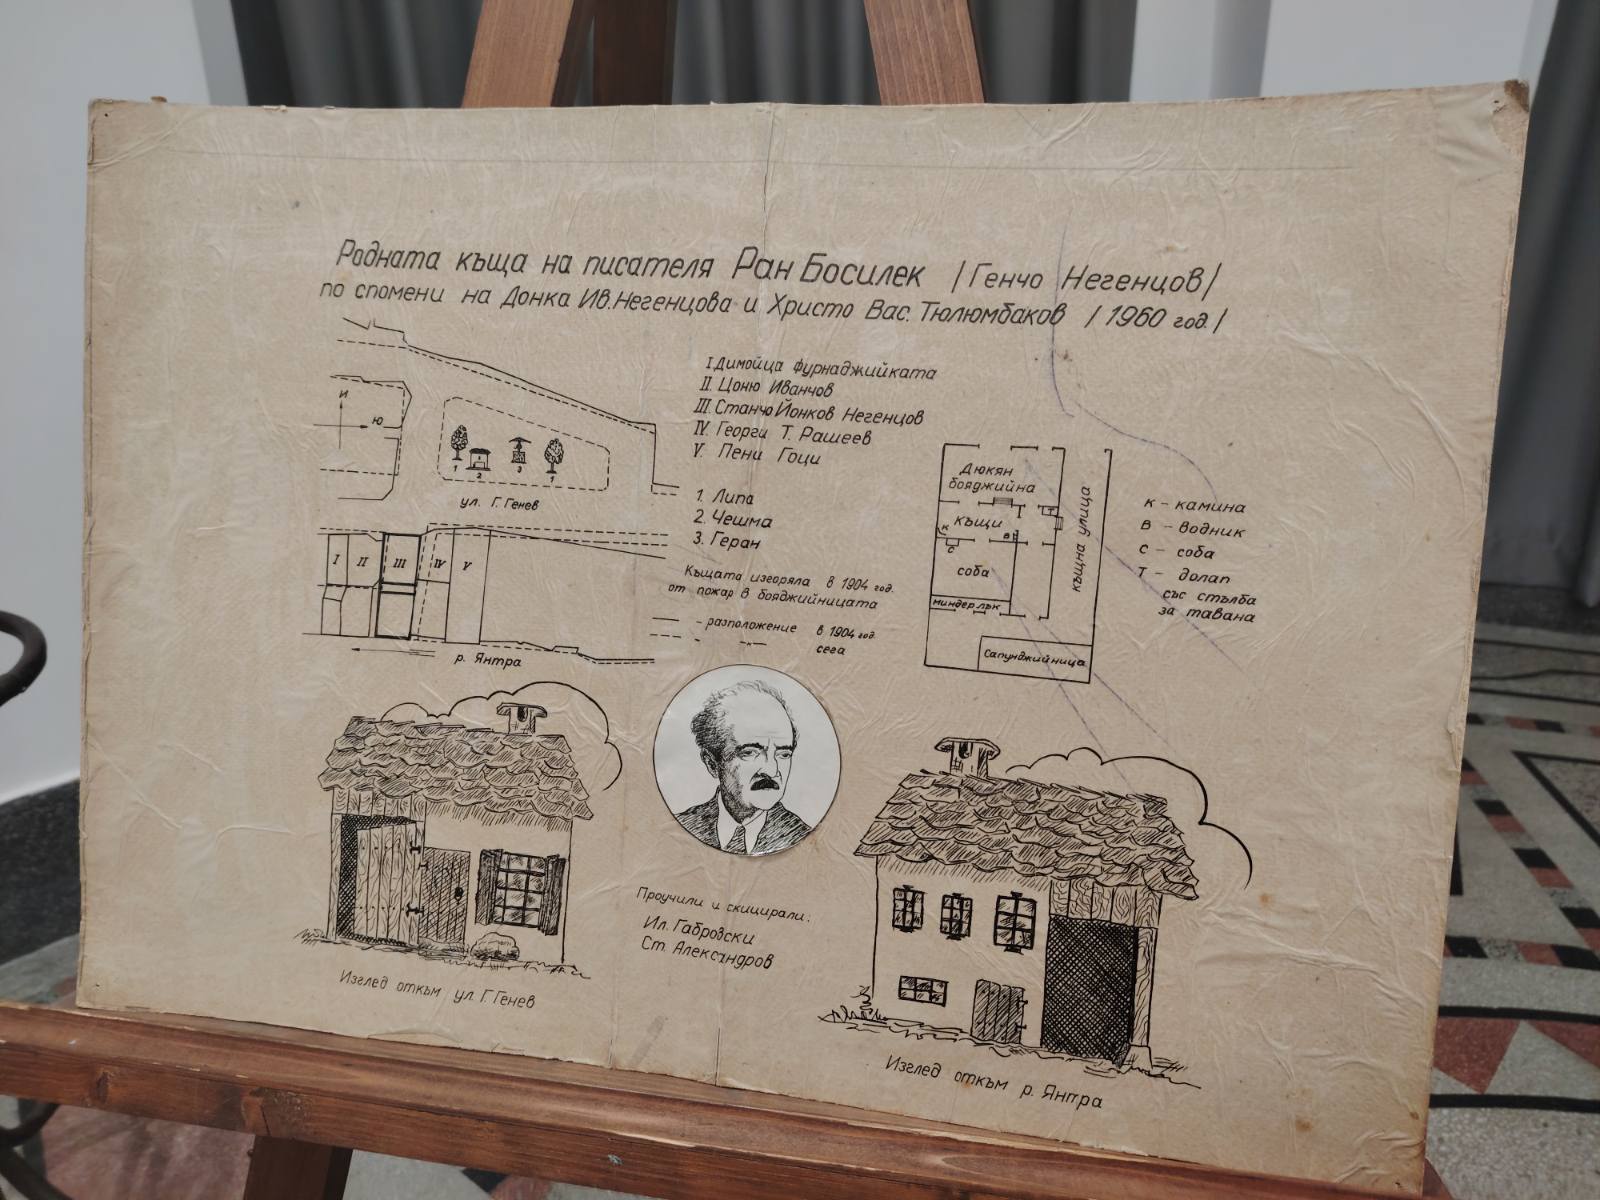 Родната къща на писателя Ран Босилек /Генчо Негенцов/
по спомени на Донка Ив. Негенцова и Христо Вас. Тюлюмбаков /1960 год./
И
Ю
1
2
3
1
ул. Г. Генев
I
II
III
IV
V
р. Янтра
I. Димойца фурнаджийката
II. Цоню Иванчов
III. Станчо Йонков Негенцов
IV. Георги Т. Рашеев
V. Пени Гоци
1. Липа
2. Чешма
3. Геран
Къщата изгоряла в 1904 год.
от пожар в бояджийницата
- разположение в 1904 год.
- " - сега
Дюкян
бояджийна
Т
къщи
к
в
с
соба
миндерлък
къщна улица
Сапунджийница
к - камина
в - водник
с - соба
Т - долап
със стълба
за тавана
Проучили и скицирали:
Ил. Габровски
Ст. Александров
Изглед откъм ул. Г. Генев
Изглед откъм р. Янтра